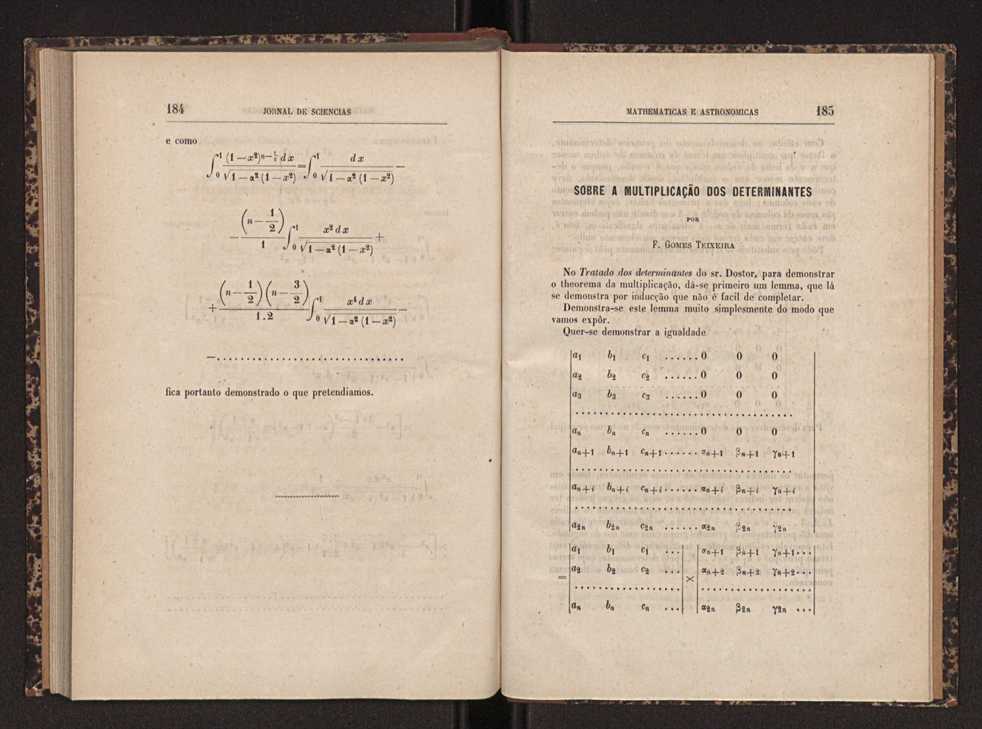 184 JORNAL DE SCIENCIAS
e como
∫₀¹ (1—x²)ⁿ⁻½ dx / √1—a²(1—x²) = ∫₀¹ dx / √1—a²(1—x²) —
— (n—1/2) / 1 ∫₀¹ x² dx / √1—a²(1—x²) +
+ (n—1/2)(n—3/2) / 1.2 ∫₀¹ x⁴ dx / √1—a²(1—x²) —
—..............................
fica portanto demonstrado o que pretendiamos.
MATHEMATICAS E ASTRONOMICAS 185
SOBRE A MULTIPLICAÇÃO DOS DETERMINANTES
POR
F. GOMES TEIXEIRA
No Tratado dos determinantes do sr. Dostor, para demonstrar
o theorema da multiplicação, dá-se primeiro um lemma, que lá
se demonstra por inducção que não é facil de completar.
Demonstra-se este lemma muito simplesmente do modo que
vamos expôr.
Quer-se demonstrar a igualdade
| a₁ b₁ c₁ ...... 0 0 0 |
| a₂ b₂ c₂ ...... 0 0 0 |
| a₃ b₃ c₃ ...... 0 0 0 |
| .................................... |
| aₙ bₙ cₙ ...... 0 0 0 |
| aₙ₊₁ bₙ₊₁ cₙ₊₁ ...... αₙ₊₁ βₙ₊₁ γₙ₊₁ |
| .................................... |
| aₙ₊ᵢ bₙ₊ᵢ cₙ₊ᵢ ...... αₙ₊ᵢ βₙ₊ᵢ γₙ₊ᵢ |
| .................................... |
| a₂ₙ b₂ₙ c₂ₙ ...... α₂ₙ β₂ₙ γ₂ₙ |
| a₁ b₁ c₁ ... | | αₙ₊₁ βₙ₊₁ γₙ₊₁ ... |
= | a₂ b₂ c₂ ... | × | αₙ₊₂ βₙ₊₂ γₙ₊₂ ... |
| .................. | | .................. |
| aₙ bₙ cₙ ... | | α₂ₙ β₂ₙ γ₂ₙ ... |